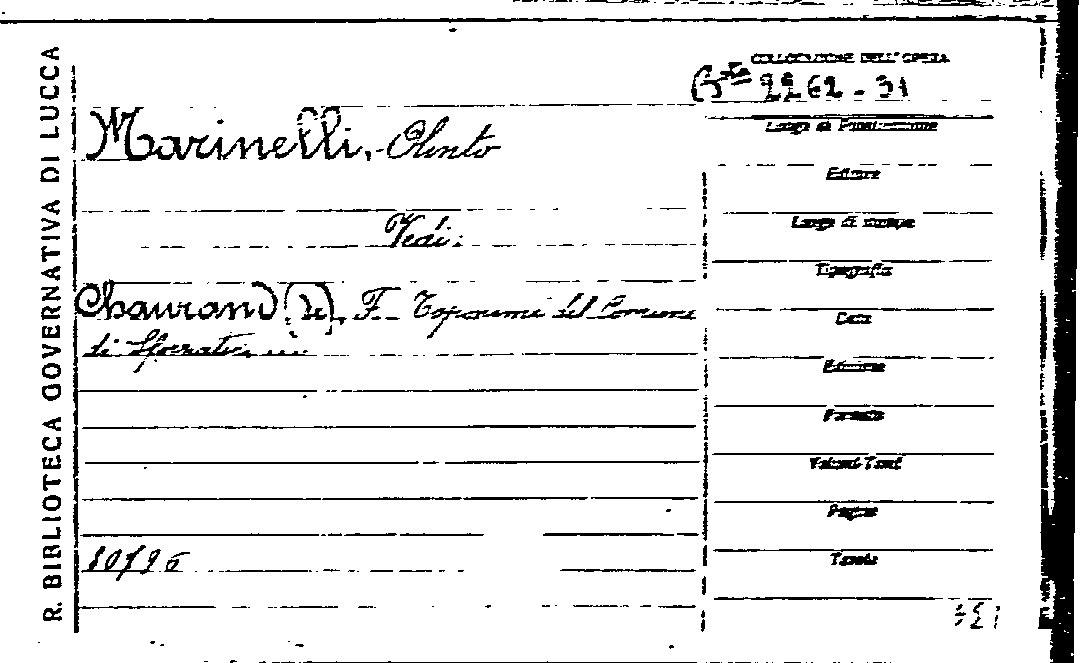 R. BIBLIOTECA GOVERNATIVA DI LUCCA
COLLOCAZIONE DELL'OPERA
Bta 2262 - 31
Marinelli, Olinto
Vedi:
Chaurand (de), F. Toponimi del Comune
di
Luogo di Pubblicazione
Editore
Luogo di stampa
Tipografia
Data
Edizione
Formato
Volumi-Tomi
Pagine
Tavole